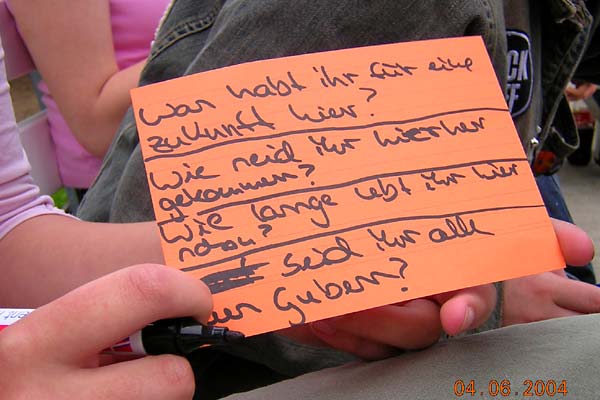 was habt ihr für eine
zukunft hier?
Wie seid ihr hierher
gekommen?
Wie lange lebt ihr hier
schon?
seid ihr alle
Guben?
04.06.2004